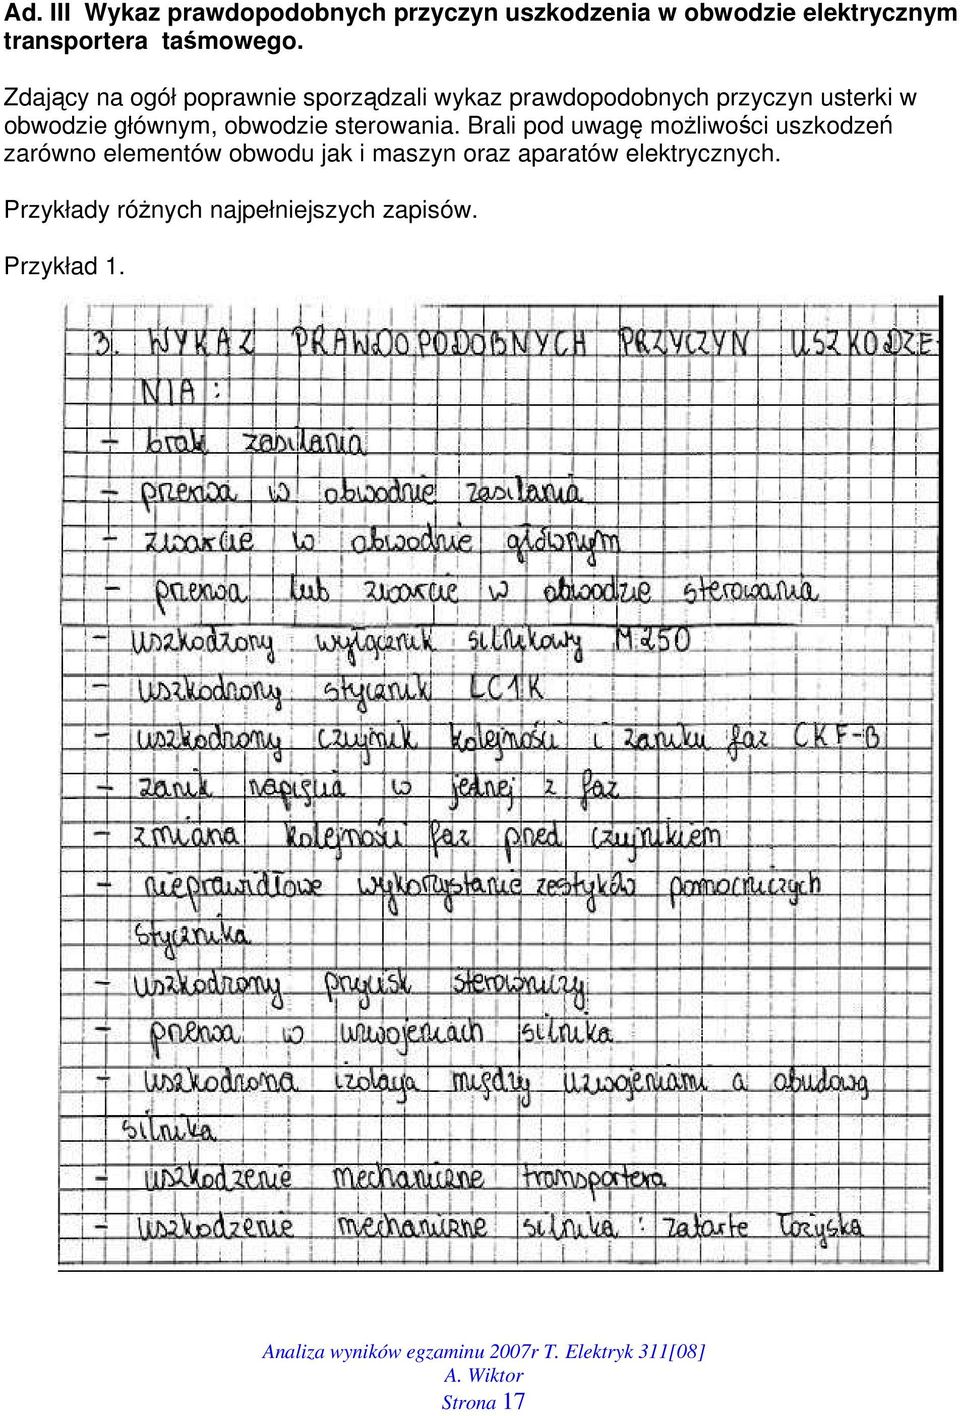 Ad. III Wykaz prawdopodobnych przyczyn uszkodzenia w obwodzie elektrycznym
transportera taśmowego.
Zdający na ogół poprawnie sporządzali wykaz prawdopodobnych przyczyn usterki w
obwodzie głównym, obwodzie sterowania. Brali pod uwagę możliwości uszkodzeń
zarówno elementów obwodu jak i maszyn oraz aparatów elektrycznych.
Przykłady różnych najpełniejszych zapisów.
Przykład 1.
3. WYKAZ PRAWDOPODOBNYCH PRZYCZYN USZKODZE-
NIA :
- brak zasilania
- przerwa w obwodzie zasilania
- zwarcie w obwodzie głównym
- przerwa lub zwarcie w obwodzie sterowania
- uszkodzony wyłącznik silnikowy M250
- uszkodzony stycznik LC1K
- uszkodzony czujnik kolejności i zaniku faz CKF-B
- zanik napięcia w jednej z faz
- zmiana kolejności faz przed czujnikiem
- nieprawidłowe wykorzystanie zestyków pomocniczych
stycznika
- uszkodzony przycisk sterowniczy
- przerwa w uzwojeniach silnika
- uszkodzona izolacja między uzwojeniami a obudową
silnika
- uszkodzenie mechaniczne transportera
- uszkodzenie mechaniczne silnika : zatarte łożyska
Analiza wyników egzaminu 2007r T. Elektryk 311[08]
A. Wiktor
Strona 17